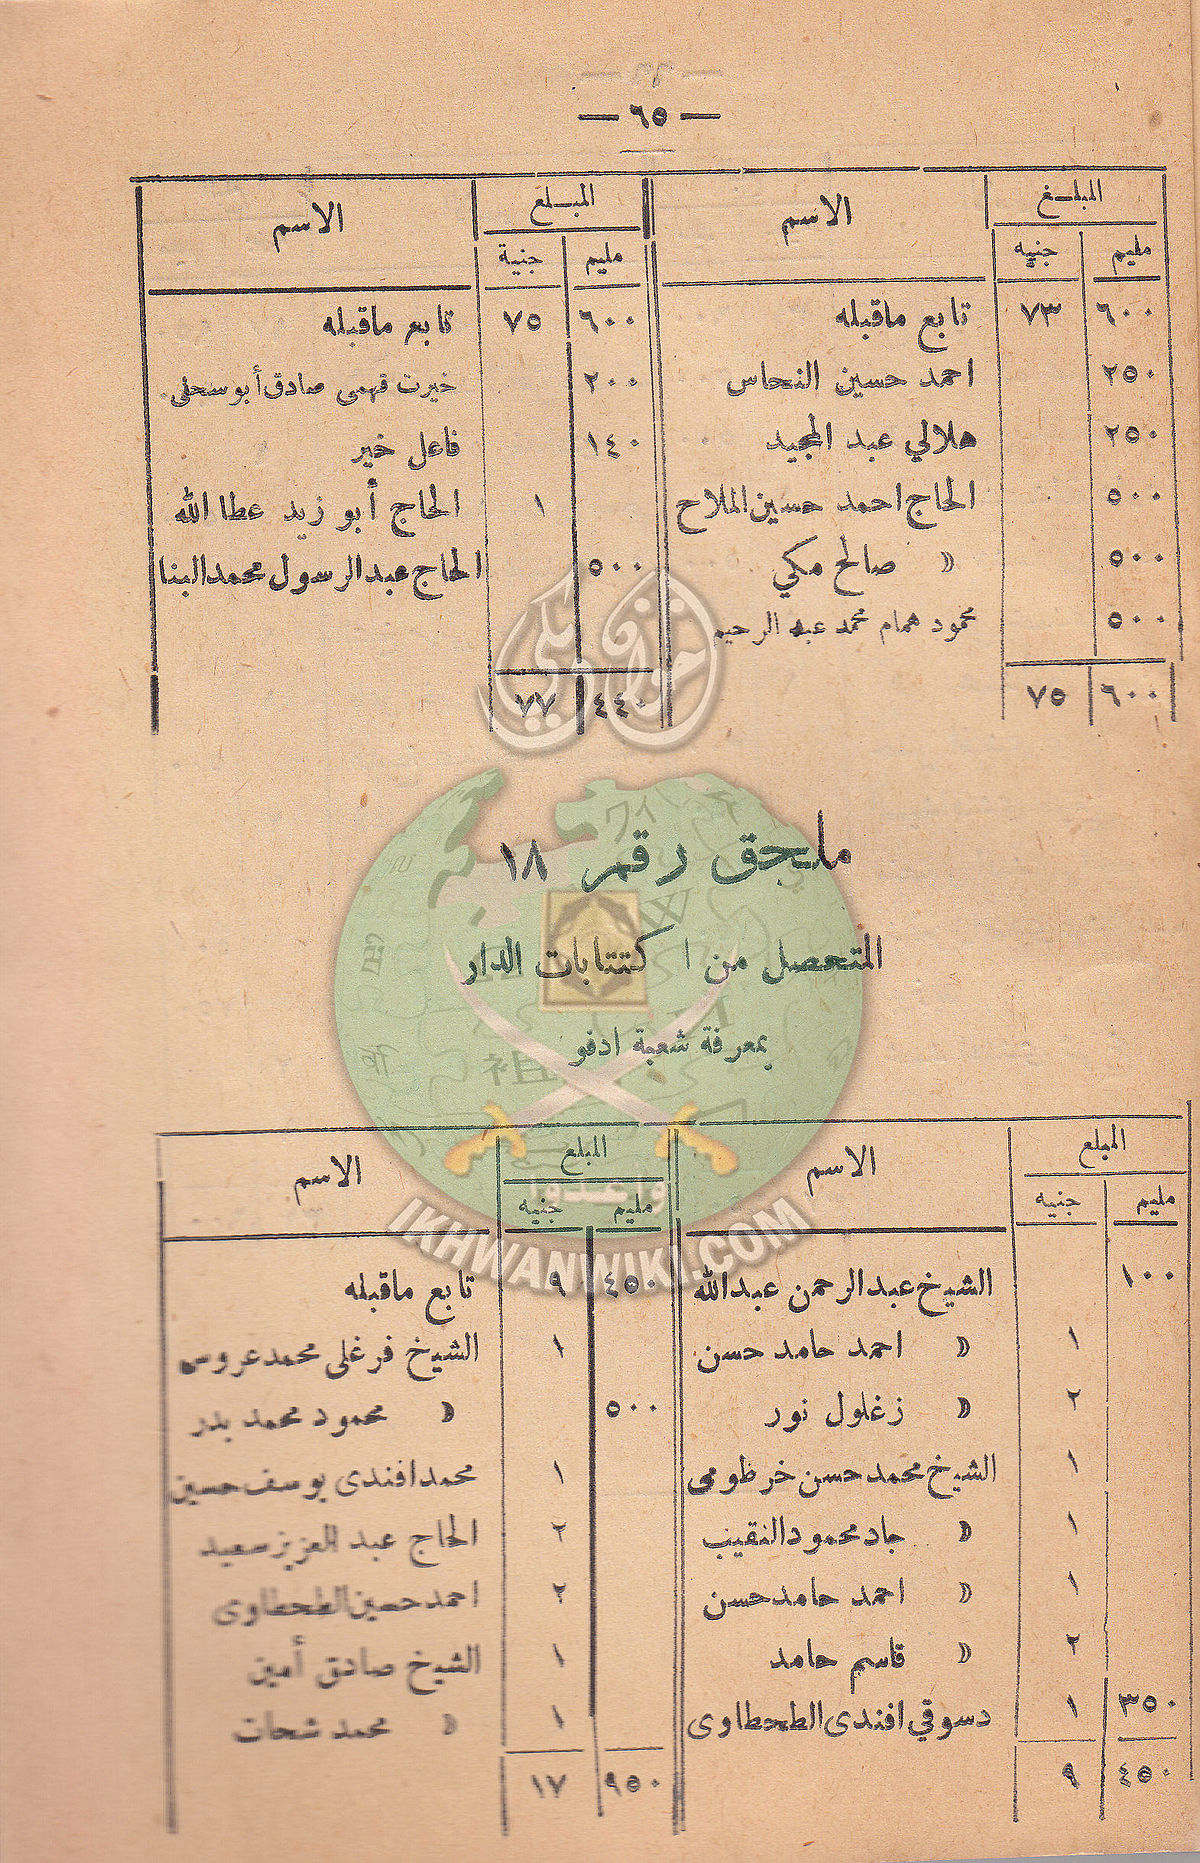 — ٦٥ —
المبلغ الاسم المبلغ الاسم
مليم جنيه مليم جنية
٦٠٠ ٧٣ تابع ماقبله ٦٠٠ ٧٥ تابع ماقبله
٢٥٠ احمد حسين النحاس ٢٠٠ خيرت فهمى صادق أبو سحلى
٢٥٠ هلالي عبد المجيد ١٤٠ فاعل خير
٥٠٠ الحاج احمد حسين الملاح ١ الحاج أبو زيد عطا الله
٥٠٠ » صالح مكي ٥٠٠ الحاج عبد الرسول محمد البنا
٥٠٠ محمود همام محمد عبد الرحيم
٦٠٠ ٧٥ ٤٤٠ ٧٧
ملحق رقم ١٨
المتحصل من اكتتابات الدار
بمعرفة شعبة ادفو
المبلغ الاسم المبلغ الاسم
مليم جنيه مليم جنيه
١٠٠ الشيخ عبد الرحمن عبد الله ٤٥٠ ٩ تابع ماقبله
١ » احمد حامد حسن ١ الشيخ فرغلى محمد عروس
٢ » زغلول نور ٥٠٠ » محمود محمد بدر
١ الشيخ محمد حسن خرطومى ١ محمد افندى يوسف حسين
١ » جاد محمود النقيب ٢ الحاج عبد العزيز سعيد
١ » احمد حامد حسن ٢ احمد حسين الطحطاوى
٢ » قاسم حامد ١ الشيخ صادق أمين
٣٥٠ ١ دسوقي افندى الطحطاوى ١ » محمد شحات
٤٥٠ ٩ ٩٥٠ ١٧
وأعدوا
IKHWANWIKI.COM